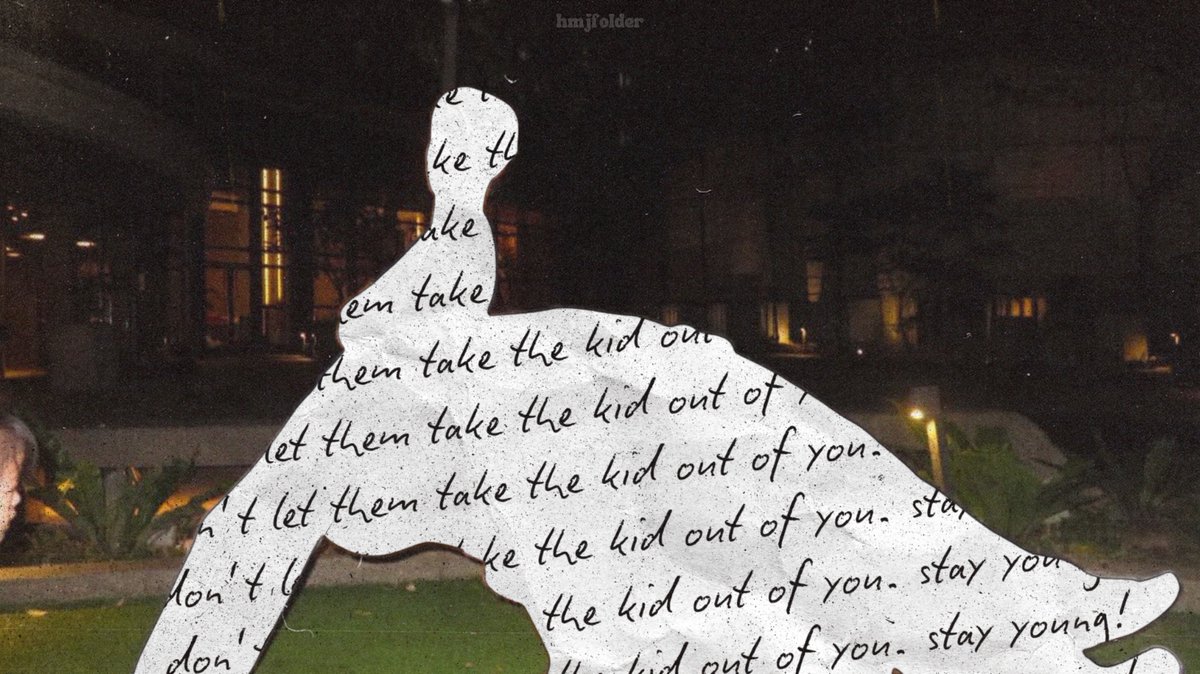 hmjfolder
ke th
ake
em take
them take the kid out
let them take the kid out of
n't let them take the kid out of you.
don't l ke the kid out of you. stay
don' the kid out of you. stay you
the kid out of you. stay young!